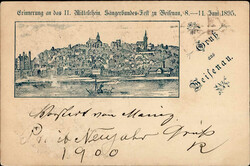 Erinnerung an das 11. Mittelrhein. Sängerbundes-Fest zu Weisenau, 8.–11. Juni 1895.
Gruß
aus
Weisenau.
Prosit Neujahr Gruß
1900